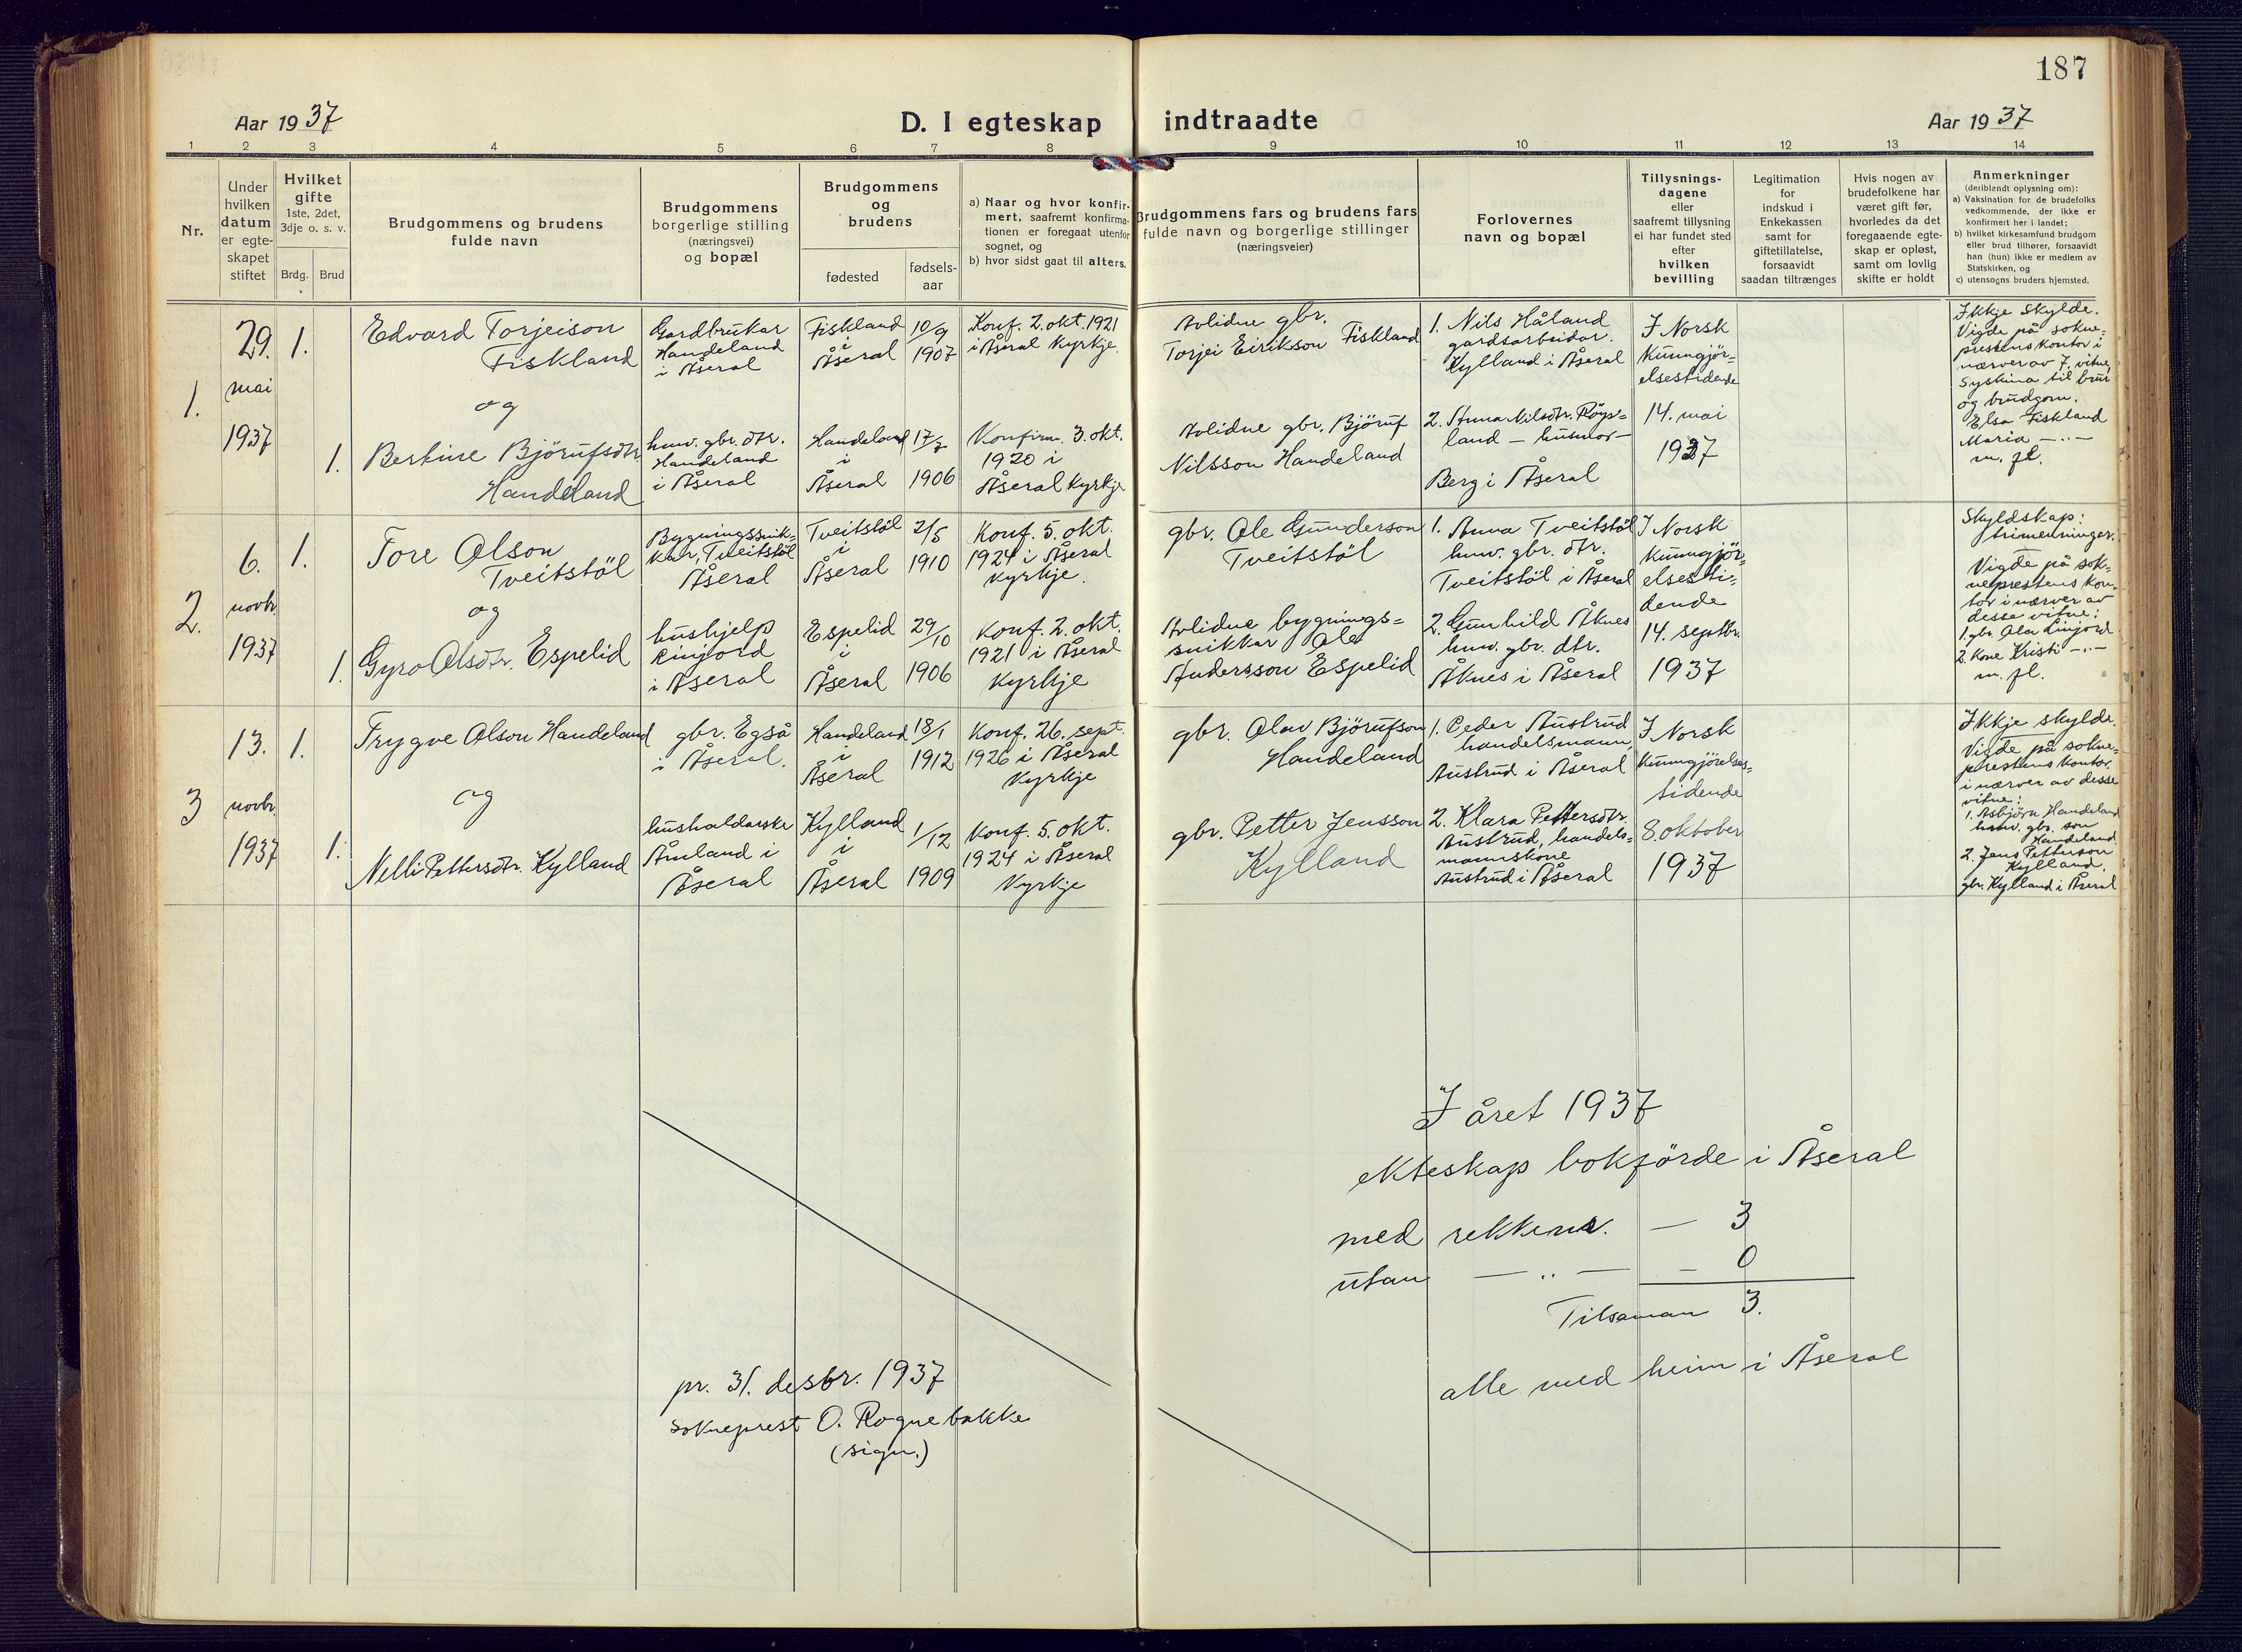 187
Aar 1937
D. I egteskap indtraadte
Aar 1937
1 2 3 4 5 6 7 8 9 10 11 12 13 14
Nr.
Under
hvilken
datum
er egte-
skapet
stiftet
Hvilket
gifte
1ste, 2det,
3dje o. s. v.
Brdg.
Brud
Brudgommens og brudens
fulde navn
Brudgommens
borgerlige stilling
(næringsvei)
og bopæl
Brudgommens
og
brudens
fødested
fødsels-
aar
a) Naar og hvor konfir-
mert, saafremt konfirma-
tionen er foregaat utenfor
sognet, og
b) hvor sidst gaat til alters.
Brudgommens fars og brudens fars
fulde navn og borgerlige stillinger
(næringsveier)
Forlovernes
navn og bopæl
Tillysnings-
dagene
eller
saafremt tillysning
ei har fundet sted
efter
hvilken
bevilling
Legitimation
for
indskud i
Enkekassen
samt for
giftetillatelse,
forsaavidt
saadan tiltrænges
Hvis nogen av
brudefolkene har
været gift før,
hvorledes da det
foregaaende egte-
skap er opløst,
samt om lovlig
skifte er holdt
Anmerkninger
(deriblandt oplysning om):
a) Vaksination for de brudefolks
vedkommende, der ikke er
konfirmert her i landet;
b) hvilket kirkesamfund brudgom
eller brud tilhører, forsaavidt
han (hun) ikke er medlem av
Statskirken, og
c) utensogns bruders hjemsted.
1.
29.
mai
1937
1.
Edvard Torjeison
Fiskland
og
Gardbrukar
Handeland
i Åseral
Fiskland
i
Åseral
10/9
1907
Konf. 2. okt. 1921
i Åseral Kyrkje.
Avlidne gbr.
Torjei Eirikson Fiskland
1. Nils Håland
gardsarbeidar.
Kylland i Åseral
I Norsk
Kunngjør-
elsestidende
14. mai
1937
Ikkje Skylde.
Vigde på sokne-
prestens kontor i
nærver av 7. vitne,
Syskina til brur
og brudgom.
Elsa Fiskland
Maria — " —
m. fl.
1.
Bertine Bjørufsdtr.
Handeland
huv. gbr. dtr.
Handeland
i Åseral
Handeland
i
Åseral
17/7
1906
Konfirm. 3. okt.
1920 i
Åseral Kyrkje
Avlidne gbr. Bjøruf
Nilsson Handeland
2. Anna Nilsdtr. Røys-
land — husmor —
Berg i Åseral
2.
6.
novbr.
1937
1.
Tore Olson
Tveitstöl
og
Bygningssnik-
kar, Tveitstöl
Åseral
Tveitstöl
i
Åseral
2/5
1910
Konf. 5. okt.
1924 i Åseral
Kyrkje.
gbr. Ole Gunderson
Tveitstöl
1. Anna Tveitstöl
huv. gbr. dtr.
Tveitstöl i Åseral
I Norsk
Kunngjør-
elsesti-
dende
14. septbr.
1937
Skyldskap:
trimenninger.
Vigde på sok-
neprestens kon-
tor i nærver av
desse vitne:
1. gbr. Olav Linjord
2. Kone Kristi — " —
m. fl.
1.
Gyro Olsdtr. Espelid
hushjelp
Linjord
i Åseral
Espelid
i
Åseral
29/10
1906
Konf. 2. okt.
1921 i Åseral
Kyrkje
Avlidne bygnings-
snikkar Ole
Andersson Espelid
2. Gunhild Åknes
huv. gbr. dtr.
Åknes i Åseral
3
13.
novbr.
1937
1.
Trygve Olson Handeland
og
gbr. Egså
i Åseral.
Handeland
i
Åseral
18/1
1912
Konf. 26. sept.
1926 i Åseral
Kyrkje
gbr. Olav Bjørufson
Handeland
1. Peder Austrud
handelsmann,
Austrud i Åseral
I Norsk
Kunngjørelses-
tidende
8. oktober
1937
Ikkje skylde.
Vigde på sokne-
prestens kontor
i nærver av desse
vitne:
1. Asbjørn Handeland
huv. gbr. son
Handeland.
2. Jens Petterson
Kylland.
gbr. Kylland i Åseral
1.
Nelli Pettersdtr. Kylland
hushaldarske
Åmland i
Åseral
Kylland
i
Åseral
1/12
1909
Konf. 5. okt.
1924 i Åseral
Kyrkje
gbr. Petter Jensson
Kylland
2. Klara Pettersdtr.
Austrud, handels-
mannskone
Austrud i Åseral
I året 1937
ekteskap bokförde i Åseral
med rekkenr. — 3
utan — " — — 0
Tilsaman 3.
alle med heim i Åseral
pr. 31. desbr. 1937
sokneprest O. Rognebakke
(sign.)